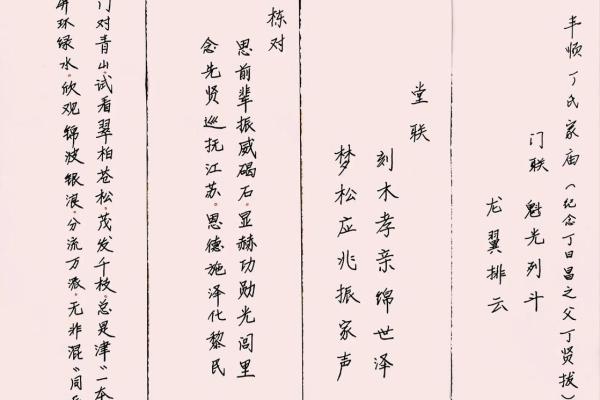 丰顺丁氏家庙（纪念丁日昌之父丁贤拔）
门联 魁光列斗
龙翼排云
堂联
刻木孝亲绵世泽
梦松应兆振家声
栋对
思前辈振威碣石·显赫功勋光闾里
念先贤巡抚江苏·恩德施泽化黎民
门对青山·试看翠柏苍松·茂发千枝·总是津"一本
屏环绿水·欣观锦波银浪·分流万派·无非混"